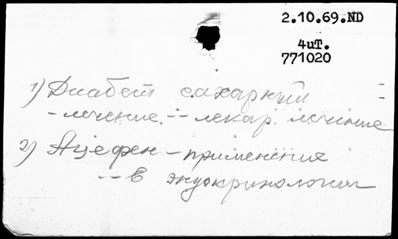 2.10.69.ND
4шт.
771020
1) Диабет сахарный
- лечение. -- лекар. лечение
2) Ацефен - применение
-- в эндокринологии